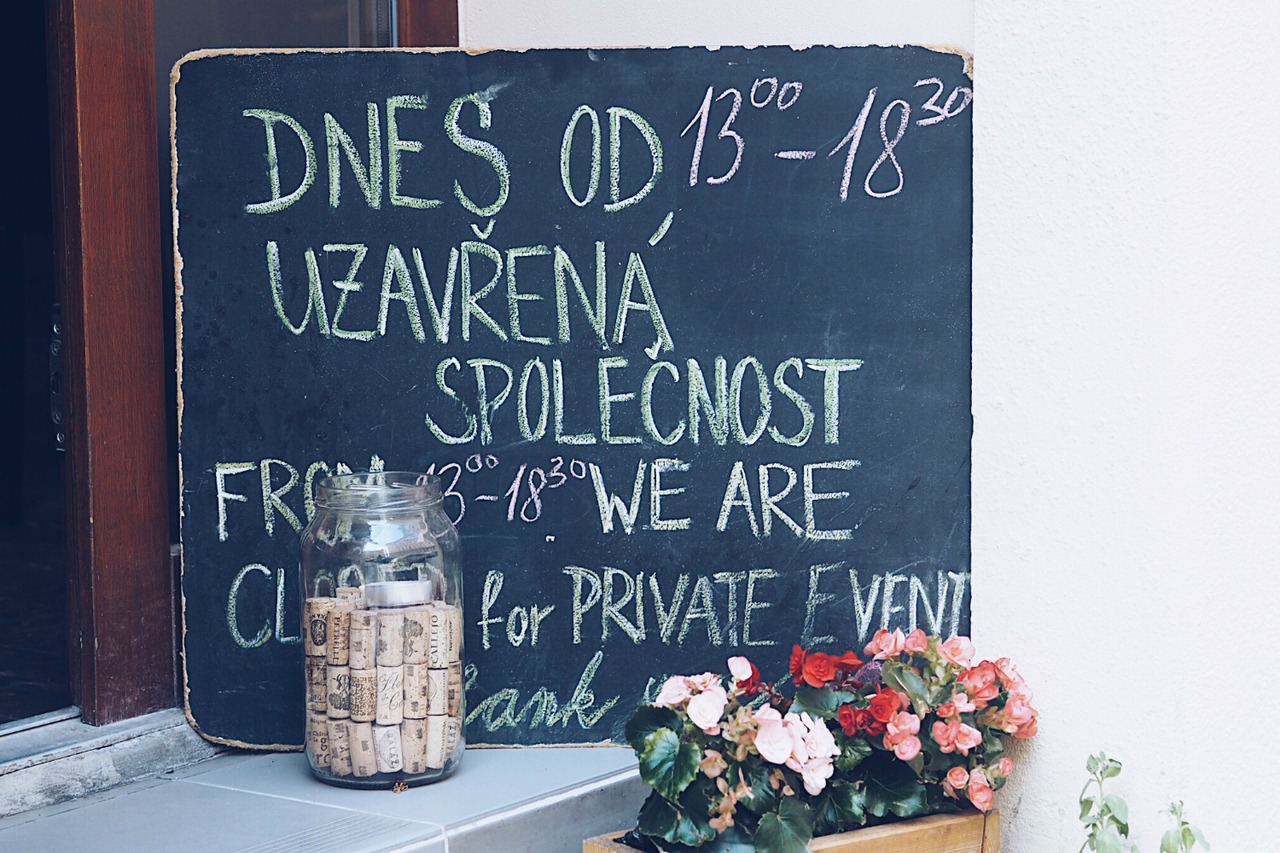 DNES OD 13⁰⁰ – 18³⁰
UZAVŘENÁ
SPOLEČNOST
FROM 13⁰⁰ – 18³⁰ WE ARE
for PRIVATE EVENT
CALLEJO